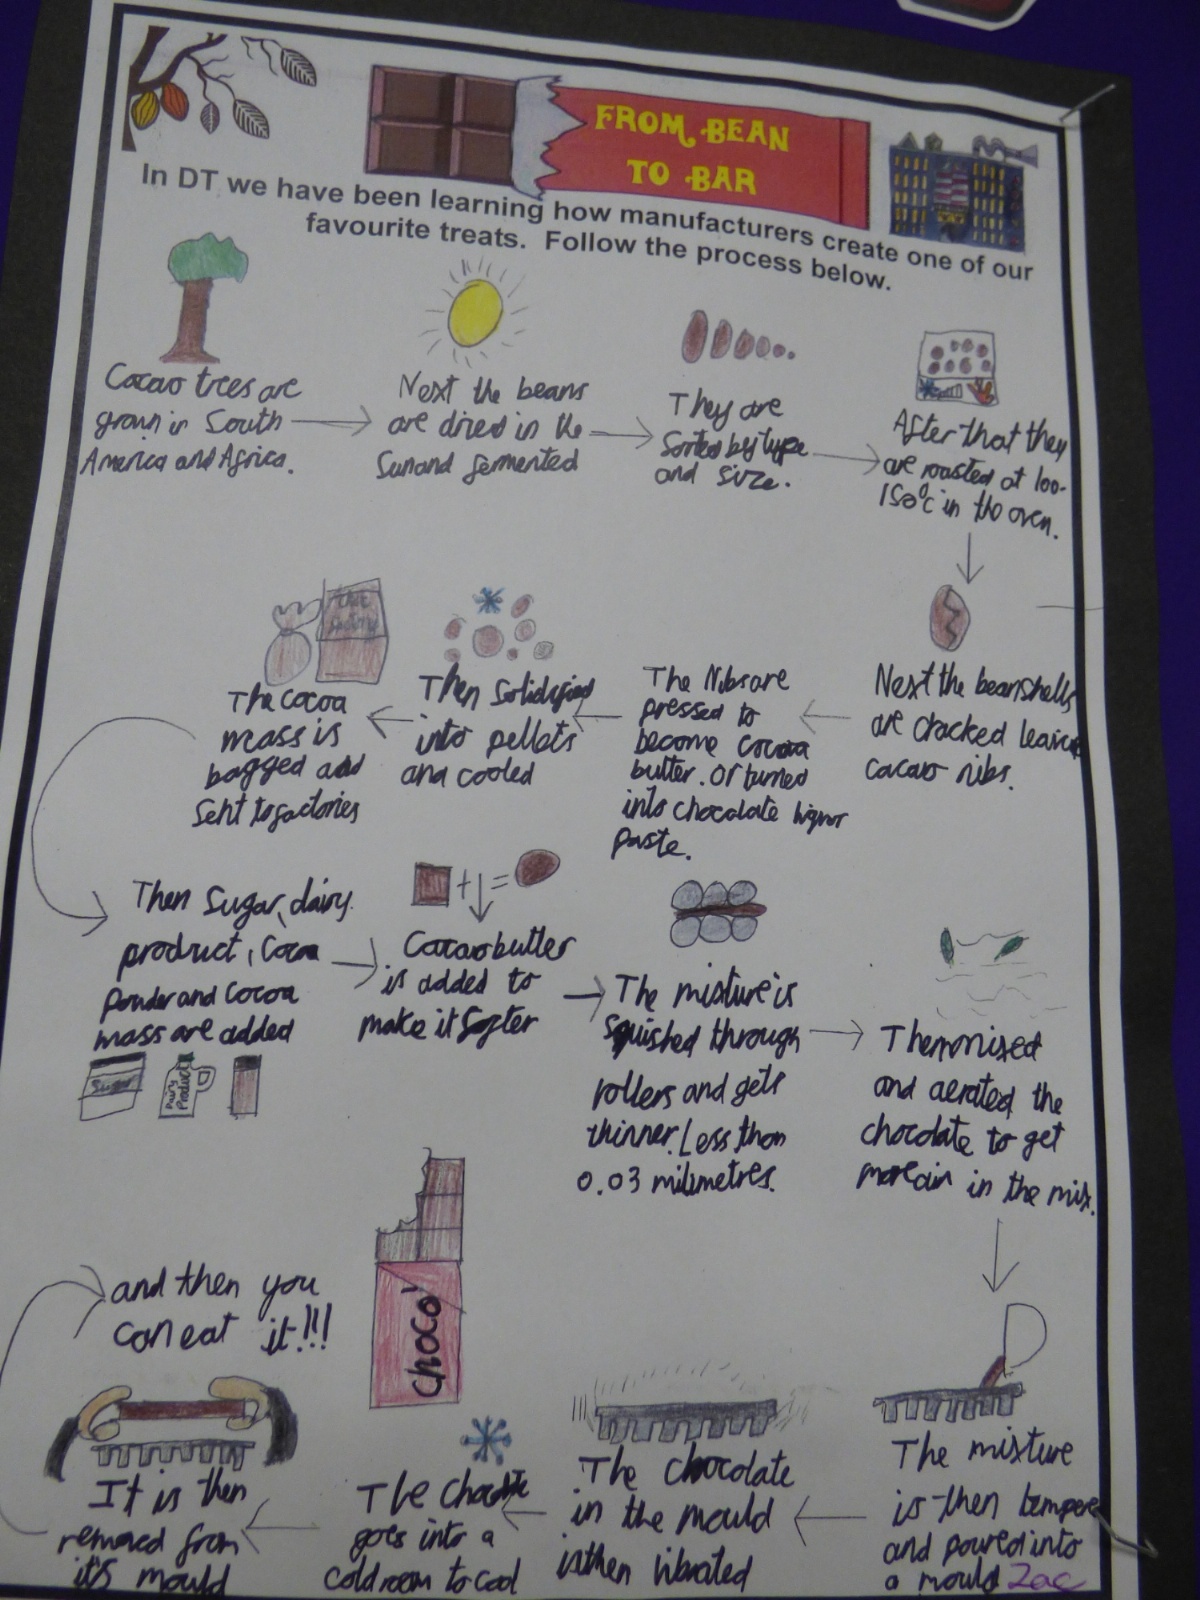 FROM BEAN
TO BAR
In DT we have been learning how manufacturers create one of our
favourite treats. Follow the process below.
Cacao trees are
grown in South
America and Africa.
Next the beans
are dried in the
Sun and fermented
They are
Sorted by type
and size.
After that they
are roasted at 100-
150°c in the oven.
Next the bean shells
are cracked leaving
cacao nibs.
The Nibs are
pressed to
become cocoa
butter. Or turned
into chocolate liquor
paste.
Then Solidified
into pellets
and cooled
factory
The cocoa
mass is
bagged and
Sent to factories
Then Sugar, dairy
product, Cocoa
powder and cocoa
mass are added
Sugar
Dairy
Product
+ =
Cacao butter
is added to
make it Softer
The mixture is
squished through
rollers and gets
thinner. Less than
0.03 milimetres.
and aerated the
chocolate to get
more air in the mix.
The mixture
is then tempered
and poured into
a mould
Zac
The chocolate
in the mould
is then vibrated
The chocolate
goes into a
cold room to cool
It is then
removed from
it's mould
and then you
can eat it!!!
Choco